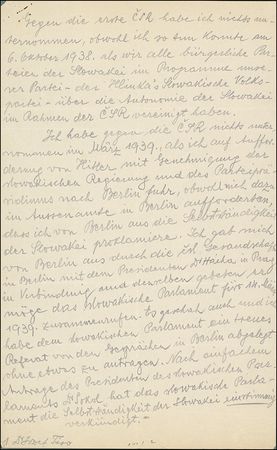 Gegen die erste ČSR habe ich nichts un-
ternommen, obwohl ich so tun konnte am
6. Oktober 1938. als wir alle bürgerliche Par-
teien der Slowakei im Programme unse-
rer Partei - der Hlinka's Slowakische Volks-
partei - über die Autonomie der Slowakei
im Rahmen der ČSR vereinigt haben.
Ich habe gegen die ČSR nichts unter-
nommen im März 1939., als ich auf Auffor-
derung von Hitler mit Genehmigung der
slowakischen Regierung und des Parteiprä-
sidiums nach Berlin fuhr, obwohl mich dazu
im Aussenamte in Berlin aufforderten,
dass ich von Berlin aus die Selbständigkeit
der Slowakei proklamiere. Ich gab mich
von Berlin aus durch die ČSR Gesandschaft
in Berlin mit dem Presidenten Dr Hácha in Prag
in Verbindung und denselben gebeten, er
möge das slowakische Parlament für 14. März
1939. zusammenrufen. Es geschah auch und ich
habe dem slowakischen Parlament ein treues
Referat von den Gesprächen in Berlin abgelegt
ohne etwas zu antragen. Nach
Antrage des Presidenten des slowakischen Par-
laments Dr Sokol hat das slowakische Parla-
ment die Selbständigkeit der Slowakei einstimmig
verkündigt. -